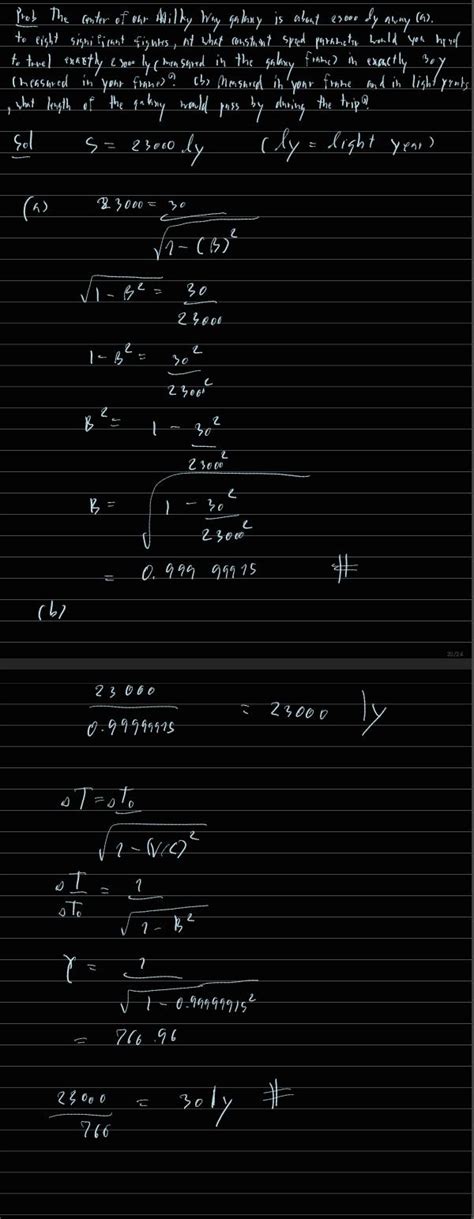 Prob The center of our Milky Way galaxy is about 23000 ly away (a).
to eight significant figures, at what constant speed parameter would you need
to travel exactly 23000 ly (measured in the galaxy frame) in exactly 30y
(measured in your frame)? (b) Measured in your frame and in lightyears
, what length of the galaxy would pass by during the trip?
Sol S = 23000 ly (ly = light year)
(a) 23000 = 30
√1-(B)²
√1-B² = 30
23000
1-B² = 30²
23000²
B² = 1 - 30²
23000²
B = √1 - 30²
23000²
= 0.999 99915 #
(b)
22/24
23000
0.99999915 = 23000 ly
ΔT = ΔT₀
√1-(V/C)²
ΔT = 1
ΔT₀ √1-B²
γ = 1
√1-0.99999915²
= 766.96
23000 = 30 ly #
766